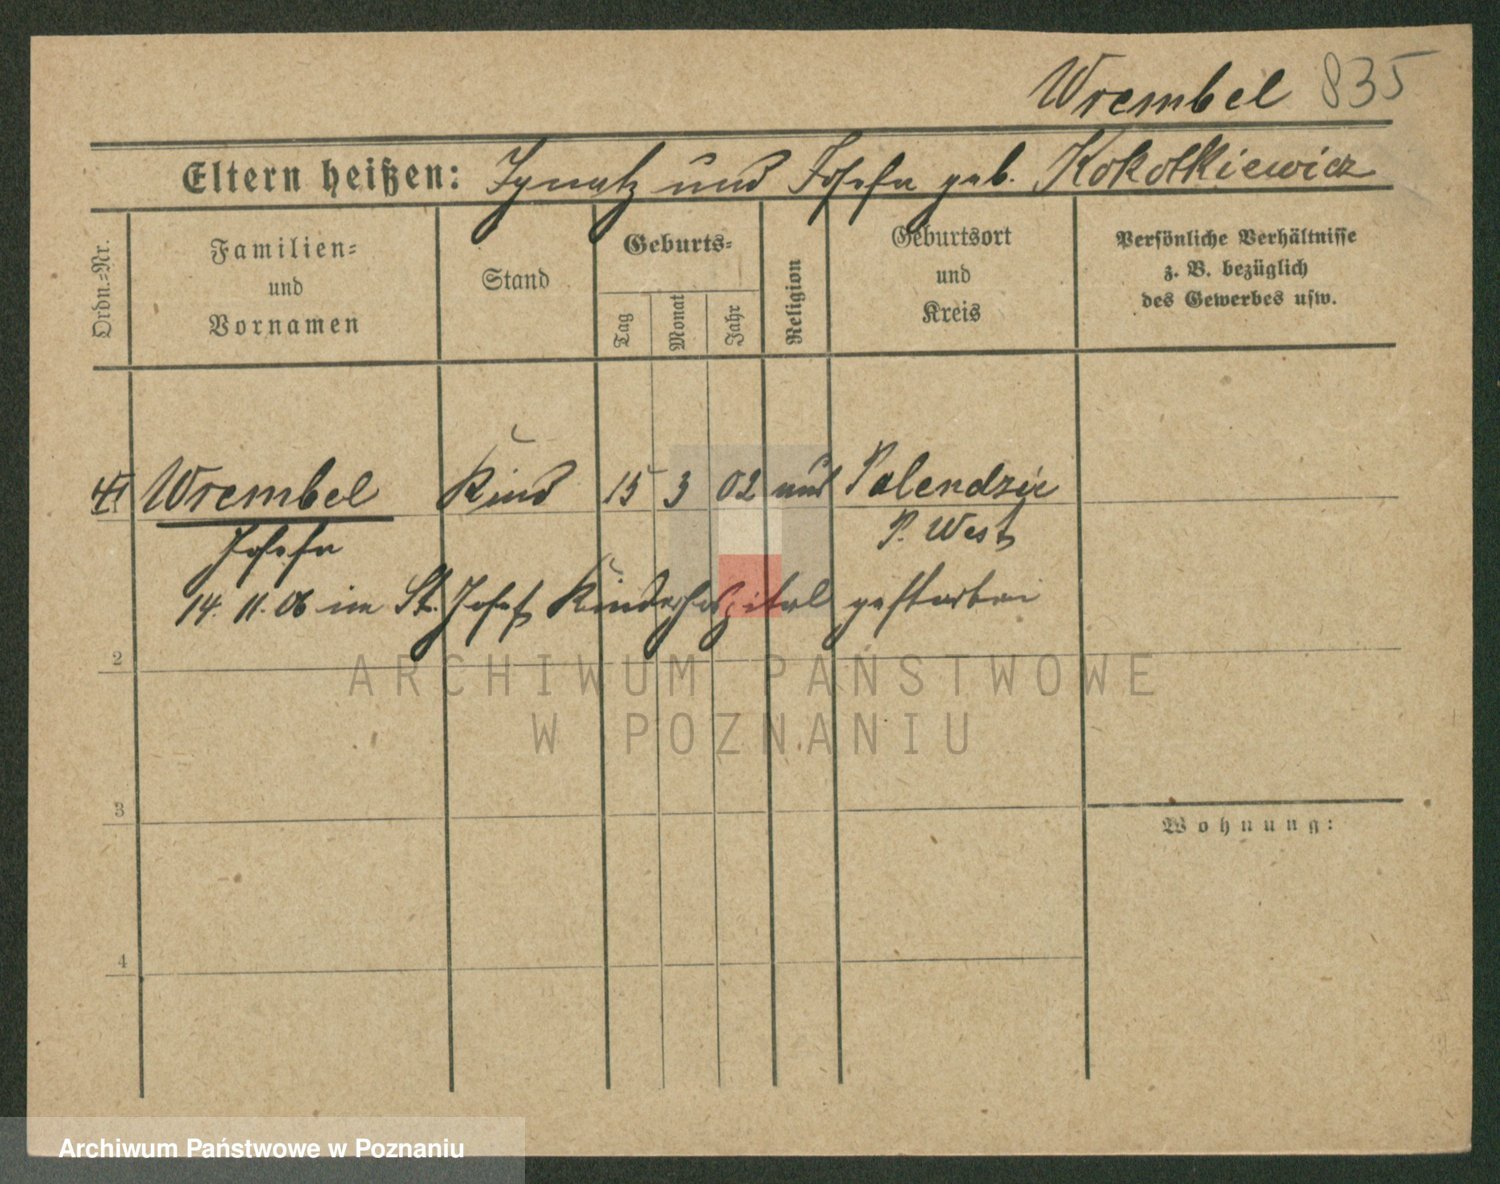 Wrembel 835
Eltern heißen: Ignatz und Josefa geb. Kokotkiewicz
Ordn.-Nr.
Familien-
und
Vornamen
Stand
Geburts-
Tag
Monat
Jahr
Religion
Geburtsort
und
Kreis
Persönliche Verhältnisse
z. B. bezüglich
des Gewerbes usw.
Wrembel Kind 15 3 02 Palendzie
Josefa P. West
14. 11. 06 im St. Josef Kinderhospital gestorben
2
ARCHIWUM PAŃSTWOWE
W POZNANIU
3
Wohnung:
4
Archiwum Państwowe w Poznaniu